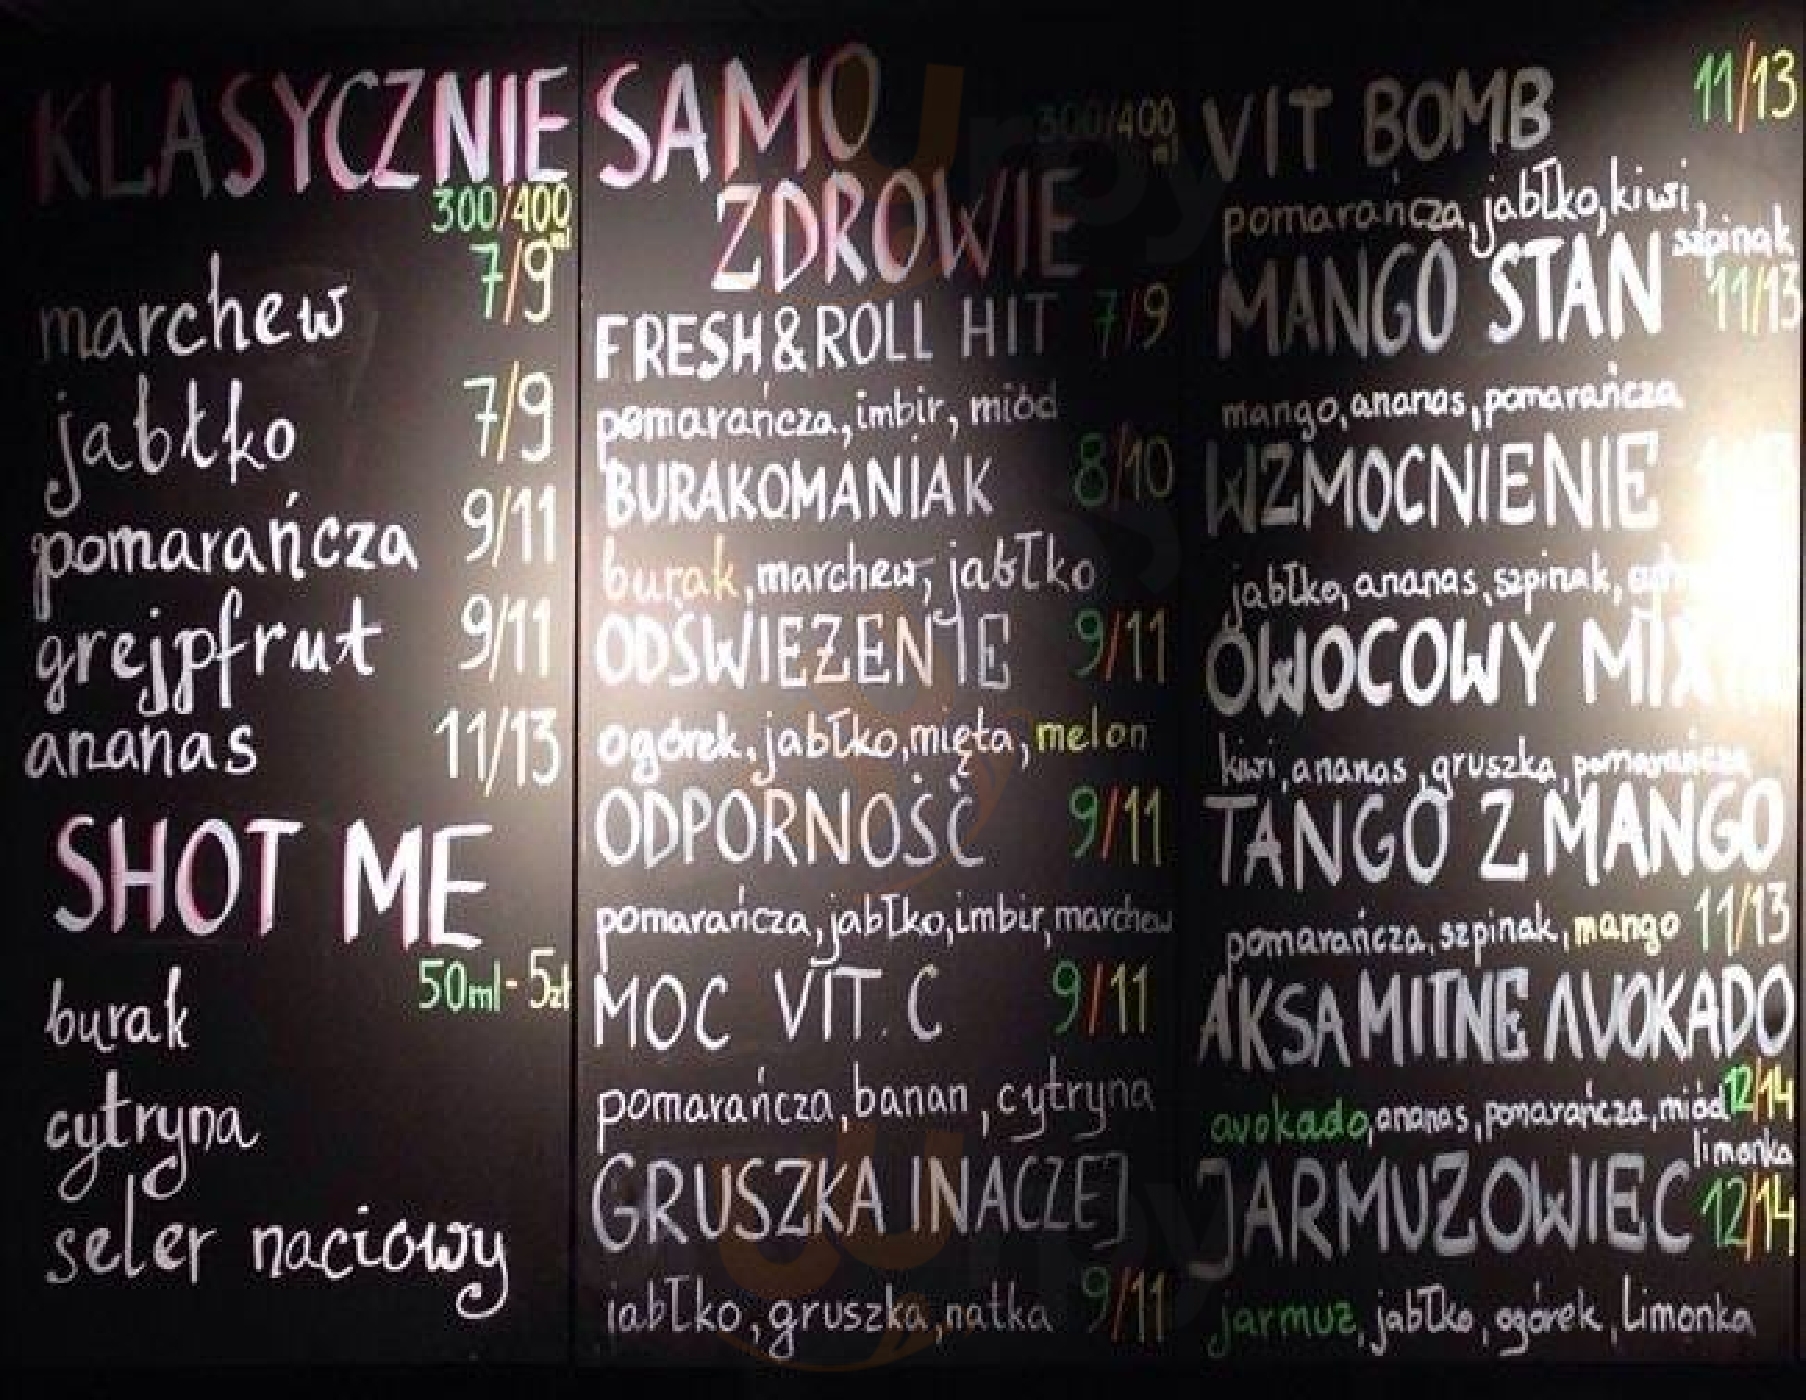 KLASYCZNIE
300/400 ml
marchew 7/9
jabłko 7/9
pomarańcza 9/11
grejpfrut 9/11
ananas 11/13
SHOT ME
50ml - 5zł
burak
cytryna
seler naciowy
SAMO
300/400 ml
ZDROWIE
FRESH&ROLL HIT 7/9
pomarańcza, imbir, miód
BURAKOMANIAK 8/10
burak, marchew, jabłko
ODŚWIEŻENIE 9/11
ogórek, jabłko, mięta, melon
ODPORNOŚĆ 9/11
pomarańcza, jabłko, imbir, marchew
MOC VIT. C 9/11
pomarańcza, banan, cytryna
GRUSZKA INACZEJ
jabłko, gruszka, natka 9/11
VIT BOMB 11/13
pomarańcza, jabłko, kiwi,
szpinak
MANGO STAN 11/13
mango, ananas, pomarańcza
WZMOCNIENIE
jabłko, ananas, szpinak,
OWOCOWY MIX
kiwi, ananas, gruszka, pomarańcza
TANGO Z MANGO
pomarańcza, szpinak, mango 11/13
AKSAMITNE AVOKADO
avokado, ananas, pomarańcza, miód 12/14
limonka
JARMUŻOWIEC 12/14
jarmuż, jabłko, ogórek, limonka